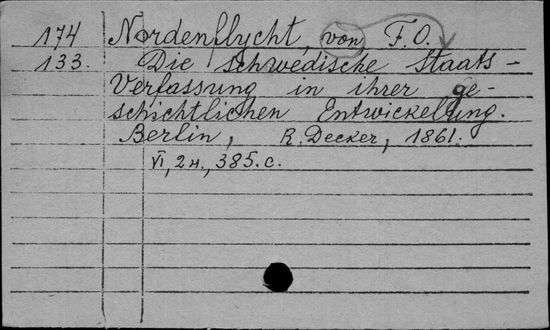 174 Nordenflycht, von F.O.
133. Die schwedische Staats-
Verfassung in ihrer ge-
schichtlichen Entwickelung.
Berlin, R. Decker, 1861.
VI, 2н., 385.c.